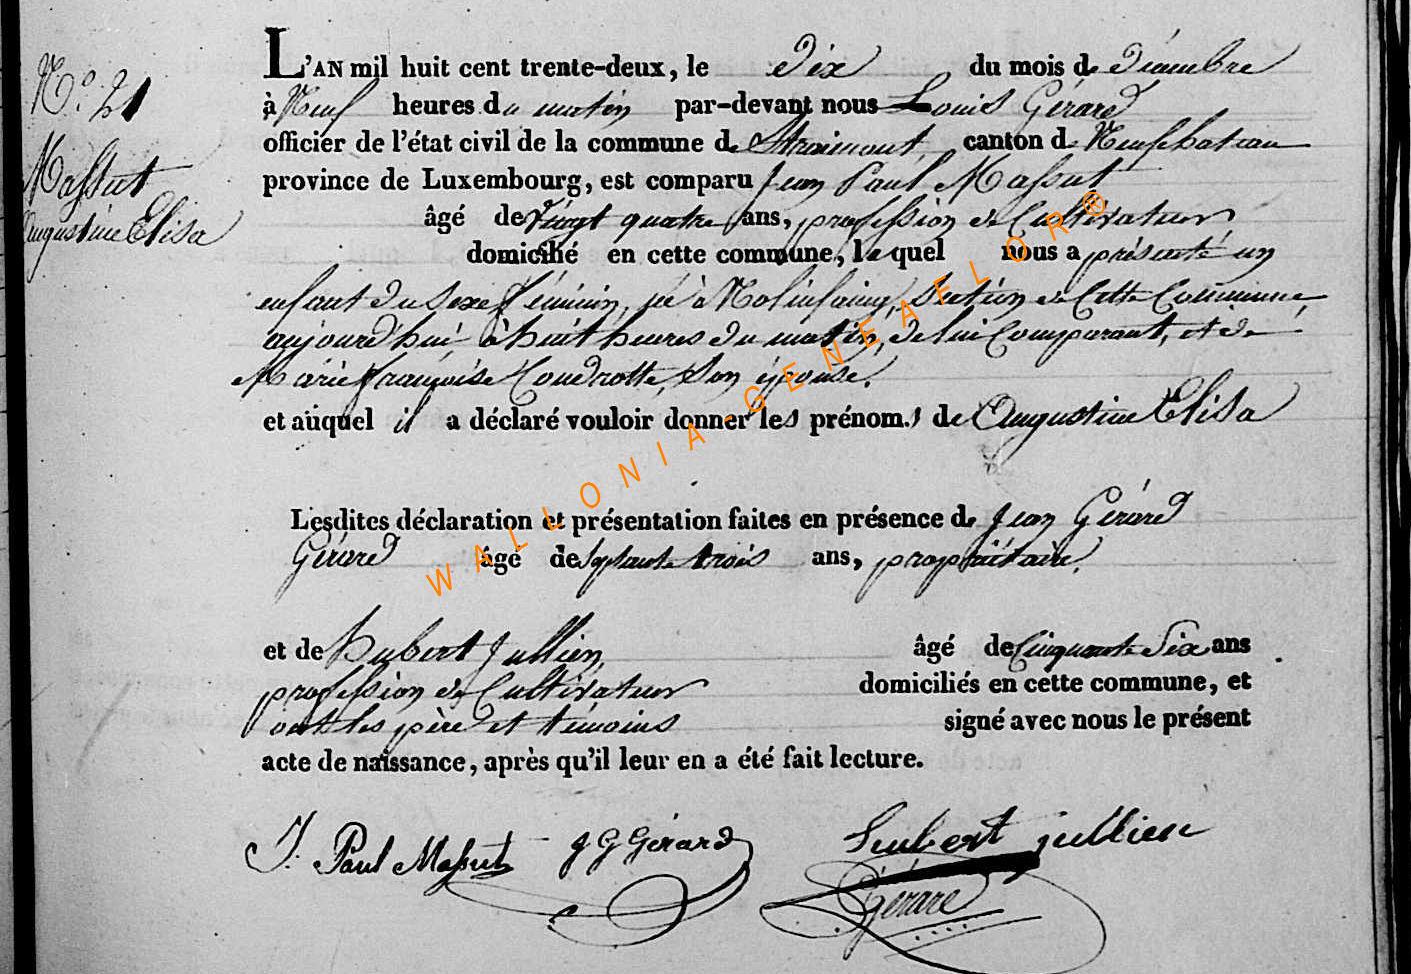 N.° 21
Massut
Augustine Elisa
L'AN mil huit cent trente-deux, le dix du mois de décembre
à Neuf heures du matin par-devant nous Louis Gérard
officier de l'état civil de la commune de Straimont, canton de Neufchateau
province de Luxembourg, est comparu Jean Paul Massut
âgé de vingt quatre ans, profession de Cultivateur
domicilié en cette commune, le quel nous a présenté un
enfant du sexe féminin, né à Nolinfaing, section de Cette Commune
aujourd'hui à huit heures du matin, de lui Comparant, et de
Marie françoise Coudrotte, Son épouse.
et auquel il a déclaré vouloir donner les prénoms de Augustine Elisa
Lesdites déclaration et présentation faites en présence de Jean Gérard
Gérard âgé de septante trois ans, propriétaire,
et de Hubert Jullien, âgé de Cinquante Six ans
profession de Cultivateur domiciliés en cette commune, et
ont les père et témoins signé avec nous le présent
acte de naissance, après qu'il leur en a été fait lecture.
J. Paul Massut J G Gérard Hubert jullien
Gérard
WALLONIA-GENEAELOR®